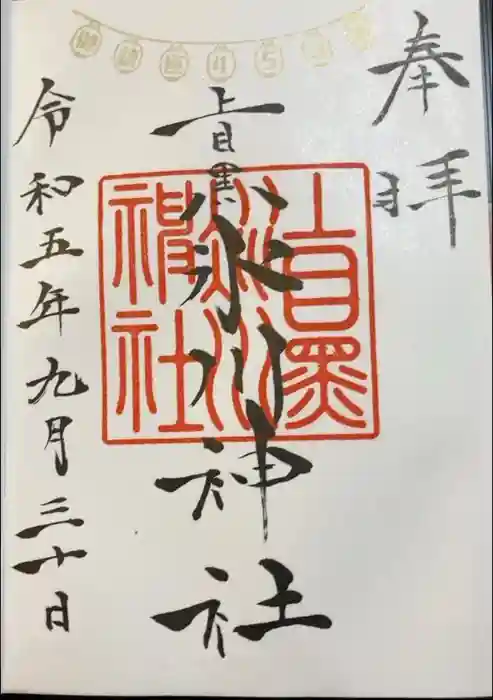 奉拝
上目黒氷川神社
上目黒氷川神社
令和五年九月三十日